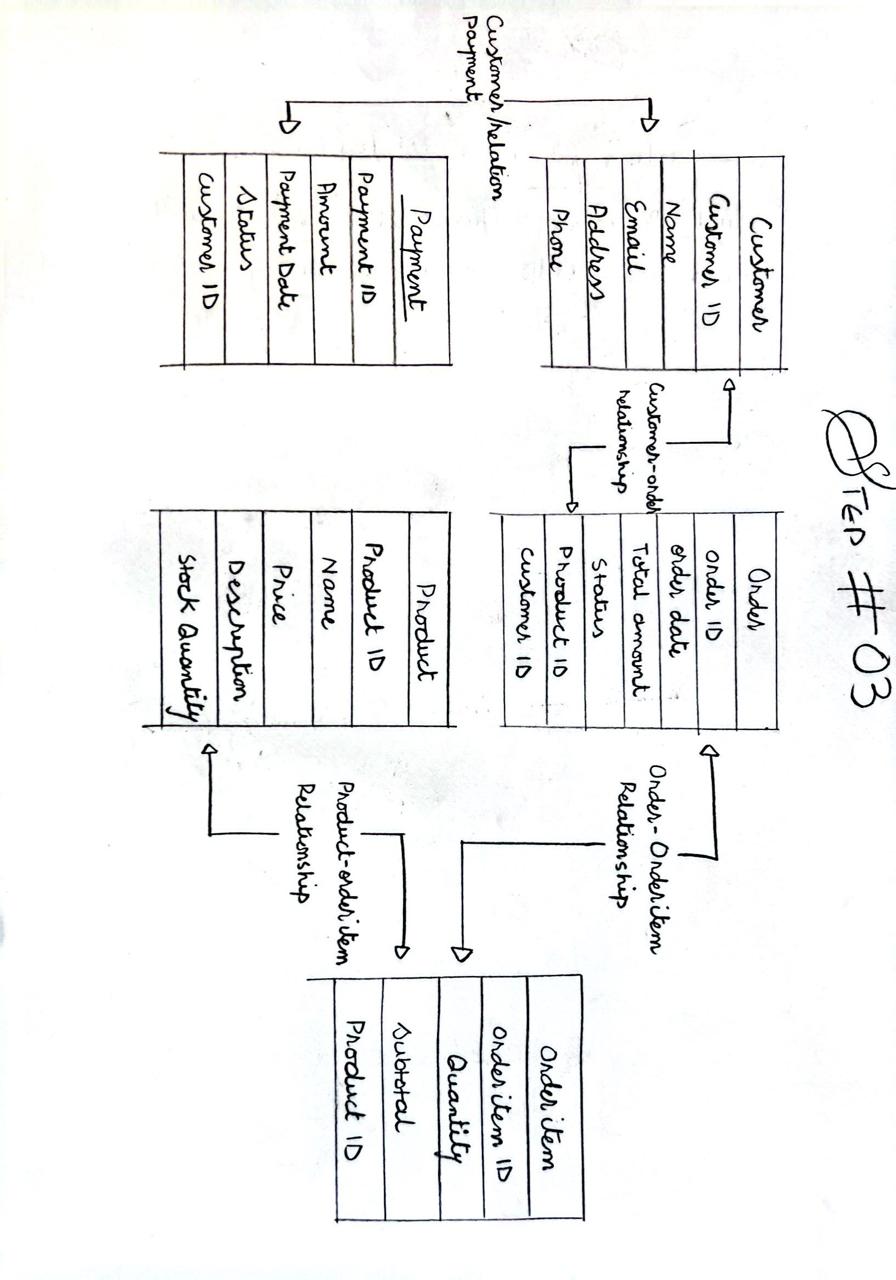 Step # 03
Customer
Customer ID
Name
Email
Address
Phone
Customer-order
relationship
Order
Order ID
order date
Total amount
Status
Product ID
Customer ID
Order-Orderitem
Relationship
Order item
Order item ID
Quantity
Subtotal
Product ID
Customer/relation
payment
Payment
Payment ID
Amount
Payment Date
Status
Customer ID
Product
Product ID
Name
Price
Description
Stock Quantity
Product-order item
Relationship